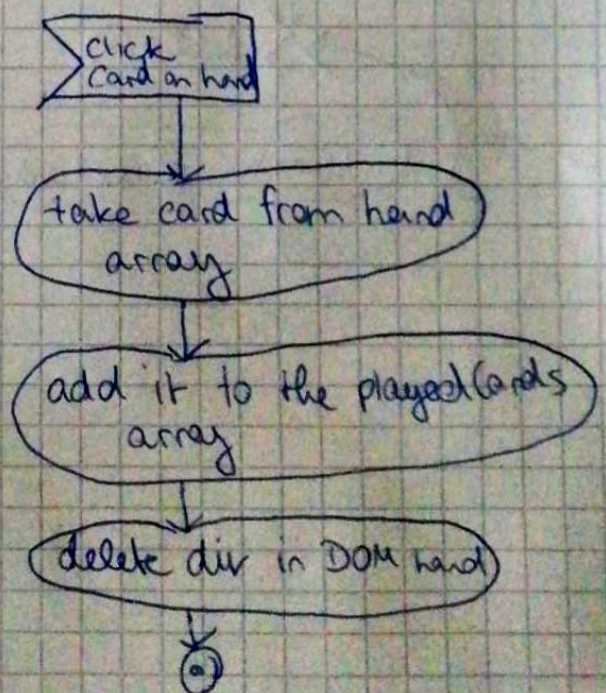 click
Card on hand
take card from hand
array
add it to the playedCards
array
delete div in DOM hand